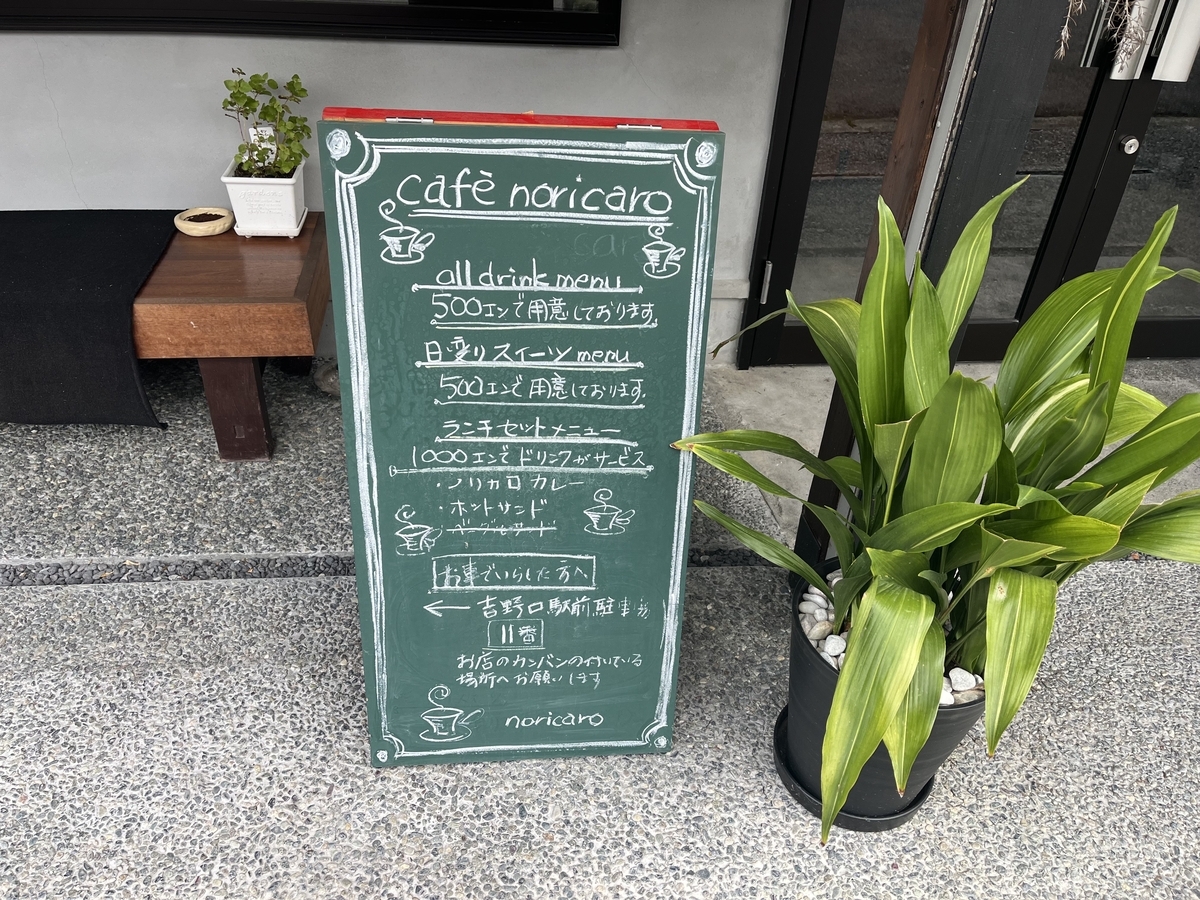 cafè noricaro
all drink menu
500エンで用意しております。
日変りスイーツ menu
500エンで用意しております。
ランチセットメニュー
1000エンでドリンクがサービス
・ノリカロ カレー
・ホットサンド
お車でいらした方へ
← 吉野口駅前駐車場
11番
お店のカンバンの付いている
場所へお願いします
noricaro